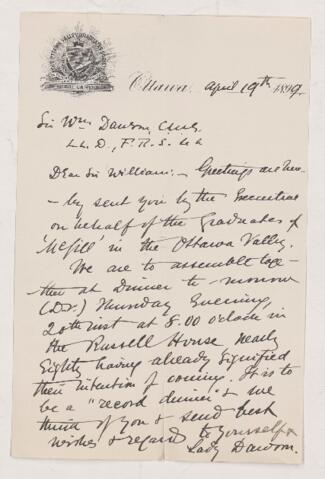 Ottawa, April 19th 1899.
Sir Wm Dawson, C.M.G.
LL.D., F.R.S. &c
Dear Sir William: — Greetings are here-
-by sent you by the Executive
on behalf of the Graduates of
'McGill' in the Ottawa Valley.
We are to assemble toge-
ther at Dinner to-morrow
(D.V.) Thursday Evening,
20th inst at 8.00 o'clock in
the Russell House, nearly
Eighty having already signified
their intention of coming. It is to
be a "record dinner" & we
think of you & send best
wishes & regard to yourself &
Lady Dawson.